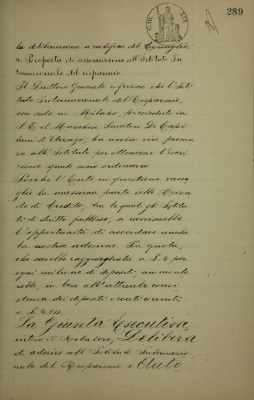 289
la deliberazione a ratifica del Consiglio
Proposta di associazione all'Istituto In-
ternazionale del risparmio.
Il Direttore Generale riferisce che l'Isti-
tuto Internazionale del Risparmio,
con sede in Milano, presieduto da
S. E. il Marchese Senatore De Capi-
tani d'Arzago, ha rivolto
all'Istituto per ottenere l'iscri-
zione quale socio ordinario.
Poiché l'Ente in questione racco-
glie la massima parte delle Azien-
de di Credito, tra le quali gli Istitu-
ti di diritto pubblico, si
l'opportunità di accordare anche
la nostra adesione. La quota,
che sarebbe ragguagliata a L. 2 per
ogni milione di depositi, ammonte-
rebbe, in base all'attuale consi-
stenza dei depositi e conti correnti
a L.
La Giunta Esecutiva,
inteso il Relatore, Delibera
di aderire all'Istituto Internazio-
nale del Risparmio e